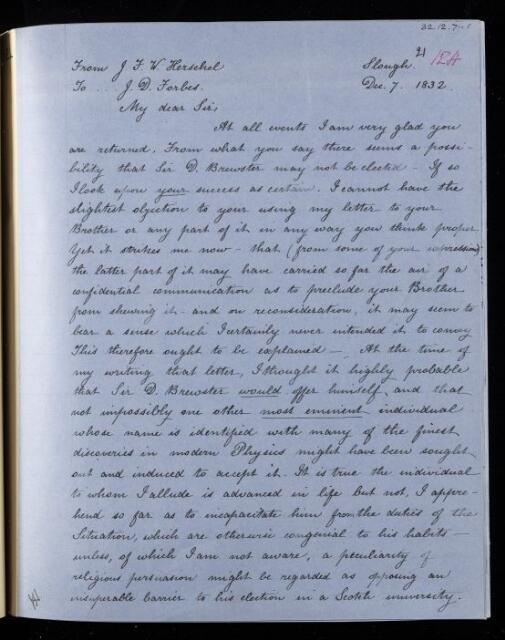 32.12.7.1
21
12A
From J F. W. Herschel
Slough.
To ... J. D. Forbes.
Dec. 7. 1832.
My dear Sir,
At all events I am very glad you
are returned. From what you say there seems a possi-
bility that Sir D. Brewster may not be elected - If so
I look upon your success as certain. I cannot have the
slightest objection to your using my letter to your
Brother or any part of it in any way you think proper
Yet it strikes me now - that (from some of your expressions)
the latter part of it may have carried so far the air of a
confidential communication as to preclude your Brother
from shewing it - and on reconsideration, it may seem to
bear a sense which I certainly never intended it to convey
This therefore ought to be explained -. At the time of
my writing that letter, I thought it highly probable
that Sir D. Brewster would offer himself, and that
not impossibly one other most eminent individual
whose name is identified with many of the finest
discoveries in modern Physics might have been sought
out and induced to accept it. It is true the individual
to whom I allude is advanced in life but not, I appre-
hend so far as to incapacitate him from the duties of the
Situation, which are otherwise congenial to his habits -
unless, of which I am not aware, a peculiarity of
religious persuasion might be regarded as opposing an
insuperable barrier to his election in a Scotch university.